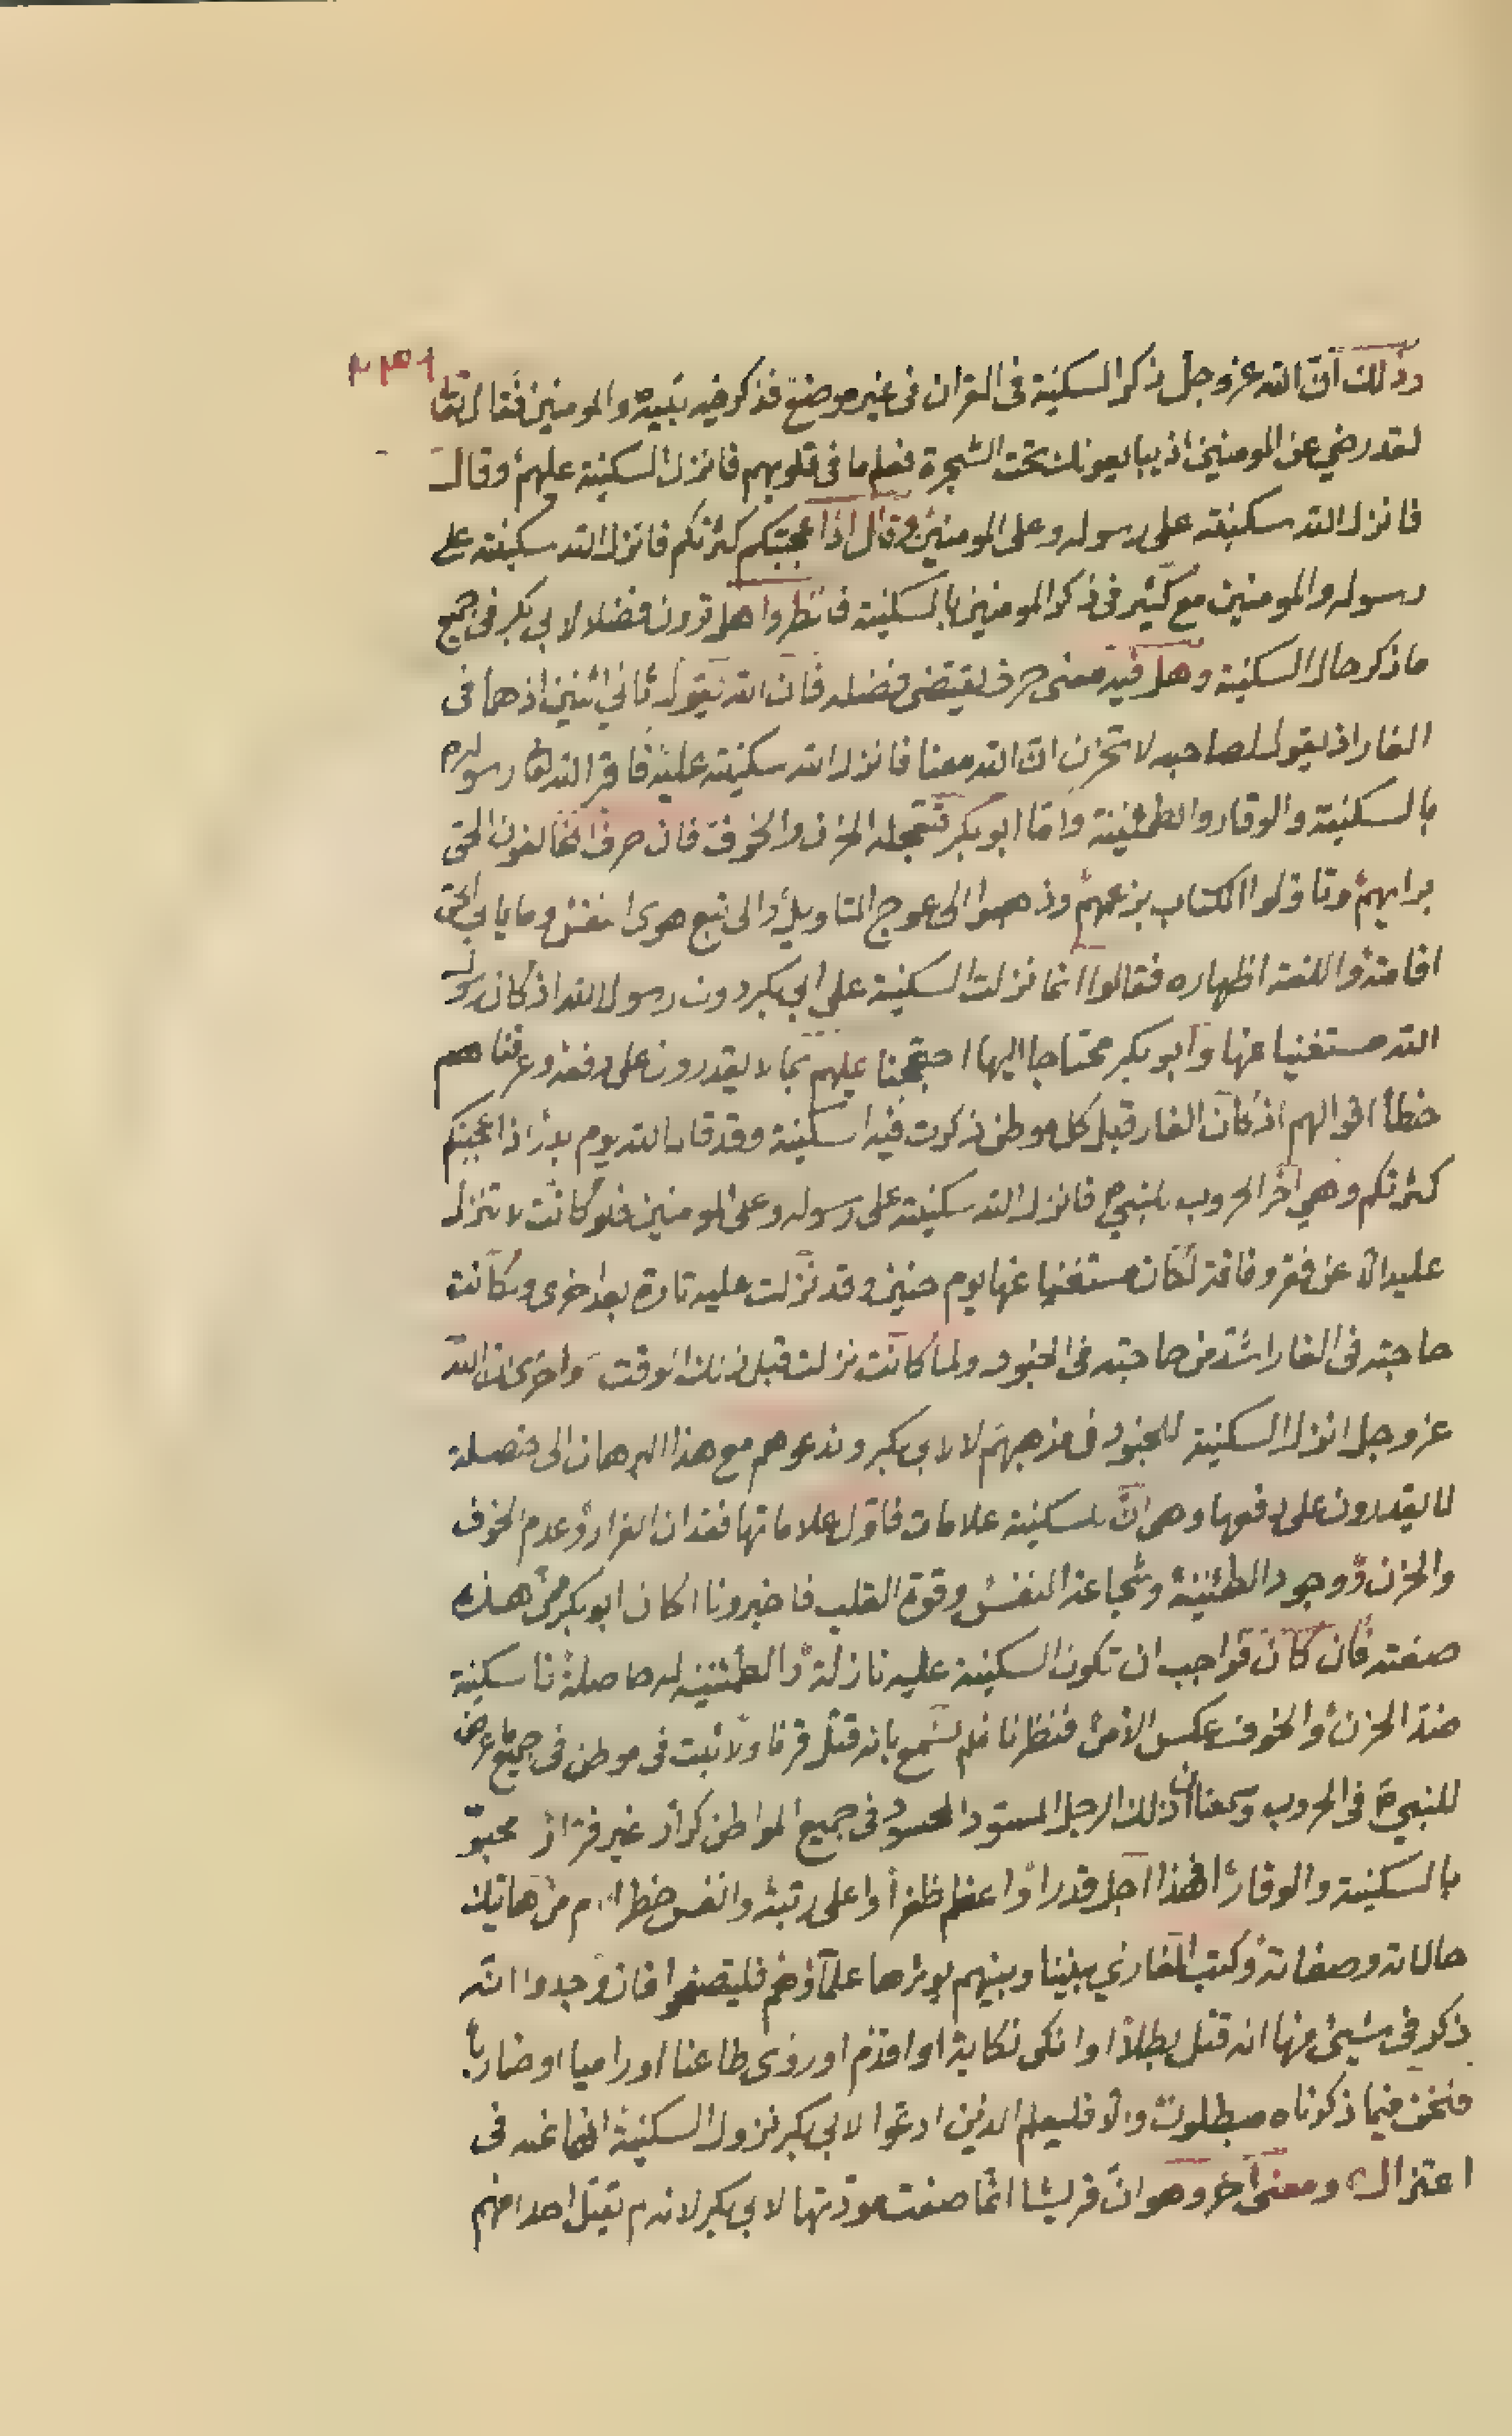 ٢٣٩
وذلك انّ الله عز وجل ذكر السكينة في القران في غير موضع فذكر فيه نبيه والمومنين فقال تعا
لقد رضي عن المومنين اذ يبايعونك تحت الشجرة فعلم ما في قلوبهم فانزل السكينة عليهم وقال
فانزل الله سكينته على رسوله وعلى المومنين وقال اذا عجبتكم كثرتكم فانزل الله سكينته على
رسوله والمومنين مع كثير في ذكر المومنين بالسكينة فانظروا هل ترون فضلا لابي بكر في جميع
ما ذكر حال السكينة وهل فيه معنى حرف يقتضى فضله فان الله يقول ثاني اثنين اذ هما في
الغار اذ يقول لصاحبه لا تحزن انّ الله معنا فانزل الله سكينته عليه فاقر الله رسوله
بالسكينة والوقار والطمئينة وامّا ابو بكر فتعجله الحزن والخوف فان حرف المخالفون الحق
برايهم وتاولوا الكتاب بزعمهم وذهبوا الى عوج التاويل والى تبع هوى النفس وما يابي الحق
اقامته واللغة اظهاره فقالوا انما نزلت السكينة على ابي بكر دون رسول الله اذ كان رسول
الله مستغنيا عنها وابو بكر محتاجا اليها احتججنا عليهم بما لا يقدرون على دفعه وعرفناهم
خطأ اقوالهم اذ كان الغار قبل كل موطن ذكرت فيه السكينة وقد قال الله يوم بدر اذا عجبتكم
كثرتكم وهي آخر الحروب للنبي م فانزل الله سكينته على رسوله وعلى المومنين فلو كانت لا تنزل
عليه الا عن فقر وفاقة لكان مستغنيا عنها يوم حنين وقد نزلت عليه تارة بعد اخرى وكانت
حاجته في الغار اشد من حاجته في الجنود ولما كانت نزلت قبل ذلك الوقت واخرى ان الله
عز وجل انزل السكينة للجنود في مذهبهم لا لابي بكر وندعوهم مع هذا البرهان الى فيصلة
لا يقدرون على دفعها وهى انّ للسكينة علامات فاول علاماتها فقدان الفرار وعدم الخوف
والحزن ووجود الطمئينة وشجاعة النفس وقوة القلب فاخبرونا اكان ابو بكر ممن هذه
صفته فان كان فواجب ان تكون السكينة عليه نازلة والطمئنينه له حاصلة فالسكينة
ضد الحزن والخوف عكس الامن فنظرنا فلم نسمع بانه قتل قرنا ولا ثبت في موطن في جميع ما عرض
للنبي م في الحروب وسمعنا ان ذلك الرجل المستود المحسود في جميع المواطن كرار غير فرار محبوّ
بالسكينة والوقار افهذا اجل قدرا واعظم ظفرا واعلى رتبة وانفس خطرا ام من هاتيك
حالاته وصفاته وكتب المغازي بيننا وبينهم يوثرها علماؤهم فليتصفحوا فان وجدوا انه
ذكر في شيئ منها انه قتل بطلا او انكى نكاية او اقدم او روى طاعنا او راميا او ضاربا
فنحن فيما ذكرناه مبطلون والا فليعلم الذين ادعوا لابي بكر نزول السكينة انها عنه في
اعتزال ومعنى آخر وهو انّ قريشا انما صفت مودتها لابي بكر لانه لم يقتل احدا منهم